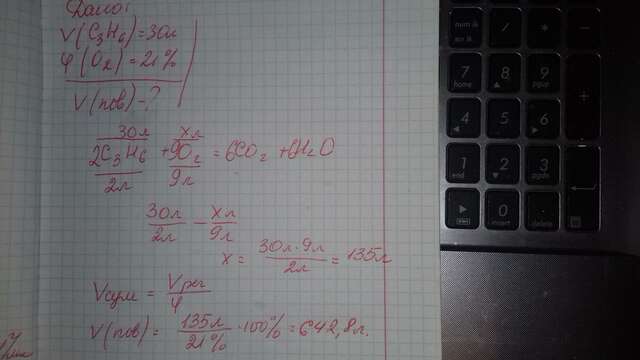 Дано:
V(C3H6)=30л
φ(O2)=21%
V(пов)-?
30л xл
2C3H6 + 9O2 = 6CO2 + 6H2O
2л 9л
30л - xл
2л 9л
x = 30л·9л = 135л
2л
Vсум = Vреч
φ
V(пов)= 135л ·100%=642,8л.
21%
num lk
scr lk
/ * -
7 8 9
home pgup
4 5 6 +
1 2 3
end pgdn
0 .
insert delete